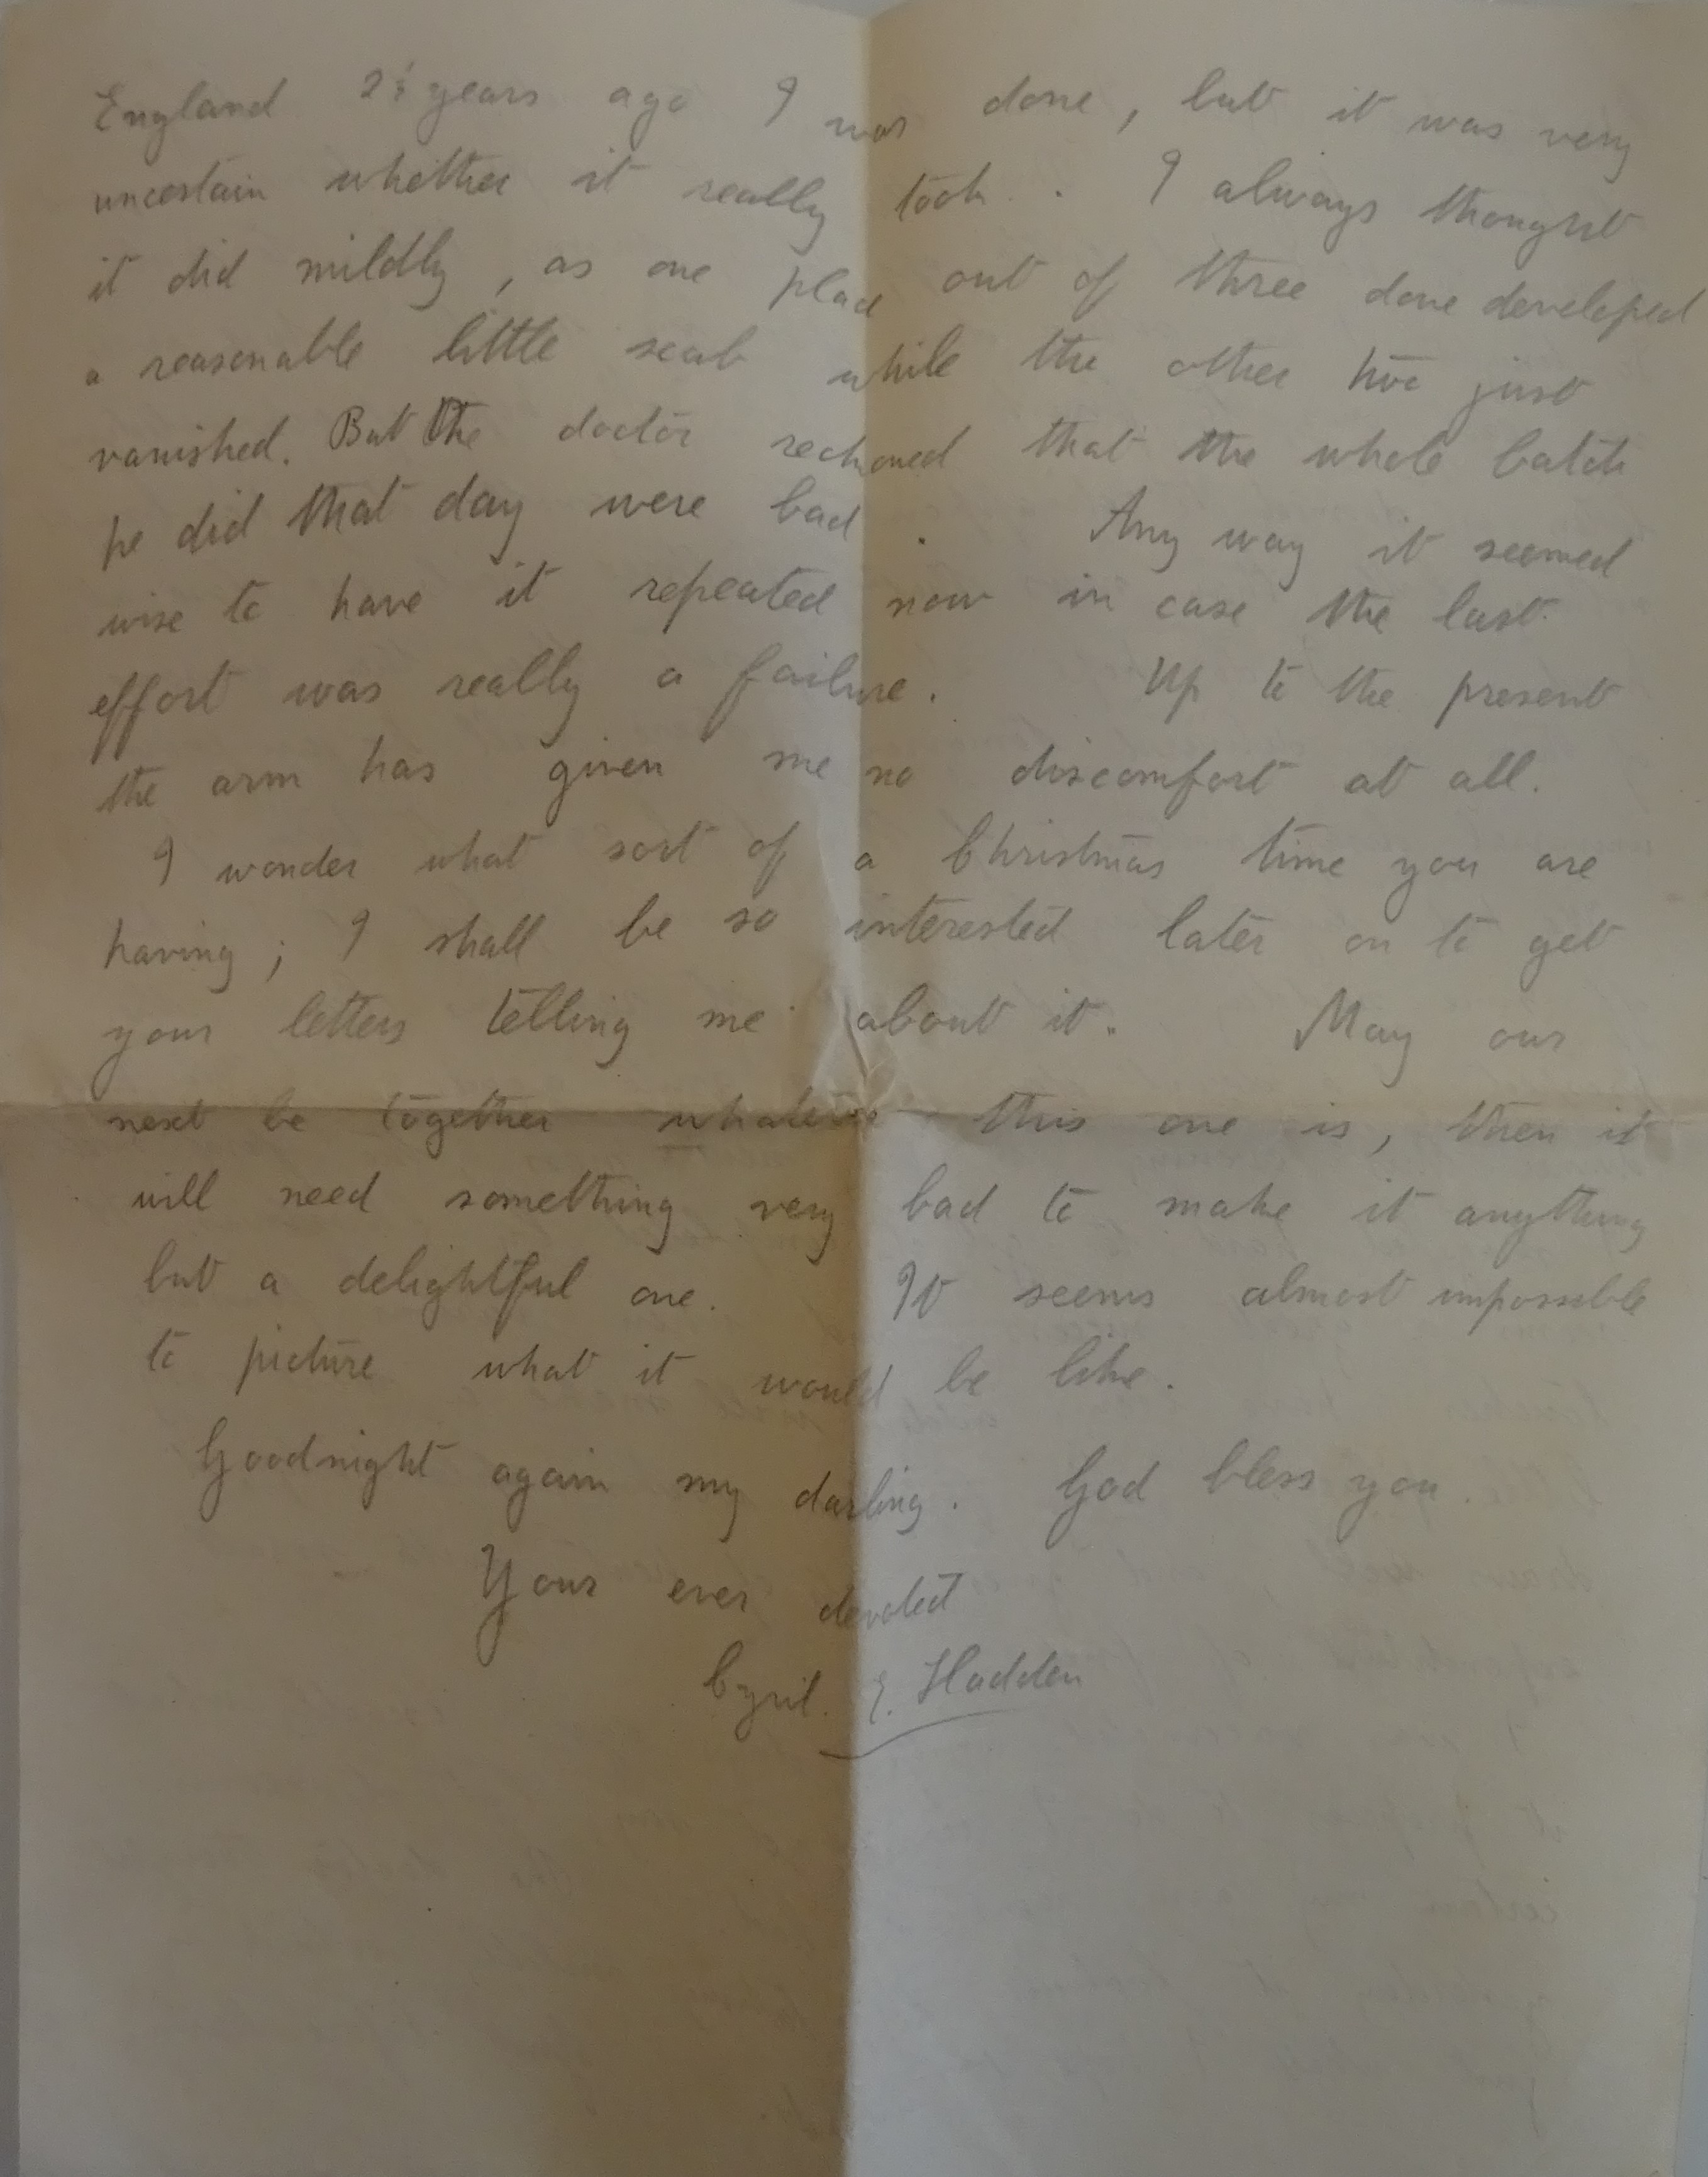 England 2½ years ago I was done, but it was very
uncertain whether it really took. I always thought
it did mildly, as one place out of three done developed
a reasonable little scab while the other two just
vanished. But the doctor reckoned that the whole batch
he did that day were bad. Any way it seemed
wise to have it repeated now in case the last
effort was really a failure. Up to the present
the arm has given me no discomfort at all.
I wonder what sort of a Christmas time you are
having; I shall be so interested later on to get
your letters telling me about it. May our
next be together whatever this one is, then it
will need something very bad to make it anything
but a delightful one. It seems almost impossible
to picture what it would be like.
Goodnight again my darling. God bless you.
Your ever devoted
Cyril. E. Hadden